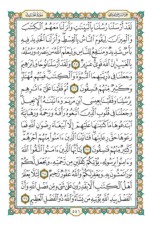 لَقَدْ أَرْسَلْنَا رُسُلَنَا بِالْبَيِّنَٰتِ وَأَنزَلْنَا مَعَهُمُ الْكِتَٰبَ
وَالْمِيزَانَ لِيَقُومَ النَّاسُ بِالْقِسْطِ وَأَنزَلْنَا الْحَدِيدَ فِيهِ
بَأْسٌ شَدِيدٌ وَمَنَٰفِعُ لِلنَّاسِ وَلِيَعْلَمَ اللَّهُ مَن يَنصُرُهُ وَرُسُلَهُ
بِالْغَيْبِ إِنَّ اللَّهَ قَوِيٌّ عَزِيزٌ ٢٥ وَلَقَدْ أَرْسَلْنَا نُوحًا وَإِبْرَٰهِيمَ
وَجَعَلْنَا فِي ذُرِّيَّتِهِمَا النُّبُوَّةَ وَالْكِتَٰبَ فَمِنْهُم مُّهْتَدٍ
وَكَثِيرٌ مِّنْهُمْ فَٰسِقُونَ ٢٦ ثُمَّ قَفَّيْنَا عَلَىٰ ءَاثَٰرِهِم بِرُسُلِنَا
وَقَفَّيْنَا بِعِيسَى ابْنِ مَرْيَمَ وَءَاتَيْنَٰهُ الْإِنجِيلَ وَجَعَلْنَا
فِي قُلُوبِ الَّذِينَ اتَّبَعُوهُ رَأْفَةً وَرَحْمَةً وَرَهْبَانِيَّةً
ابْتَدَعُوهَا مَا كَتَبْنَٰهَا عَلَيْهِمْ إِلَّا ابْتِغَاءَ رِضْوَٰنِ اللَّهِ فَمَا
رَعَوْهَا حَقَّ رِعَايَتِهَا فَـَٔاتَيْنَا الَّذِينَ ءَامَنُوا مِنْهُمْ أَجْرَهُمْ
وَكَثِيرٌ مِّنْهُمْ فَٰسِقُونَ ٢٧ يَٰأَيُّهَا الَّذِينَ ءَامَنُوا اتَّقُوا اللَّهَ
وَءَامِنُوا بِرَسُولِهِ يُؤْتِكُمْ كِفْلَيْنِ مِن رَّحْمَتِهِ وَيَجْعَل لَّكُمْ
نُورًا تَمْشُونَ بِهِ وَيَغْفِرْ لَكُمْ وَاللَّهُ غَفُورٌ رَّحِيمٌ ٢٨ لِّئَلَّا يَعْلَمَ
أَهْلُ الْكِتَٰبِ أَلَّا يَقْدِرُونَ عَلَىٰ شَيْءٍ مِّن فَضْلِ اللَّهِ وَأَنَّ
الْفَضْلَ بِيَدِ اللَّهِ يُؤْتِيهِ مَن يَشَاءُ وَاللَّهُ ذُو الْفَضْلِ الْعَظِيمِ ٢٩
٥٤١